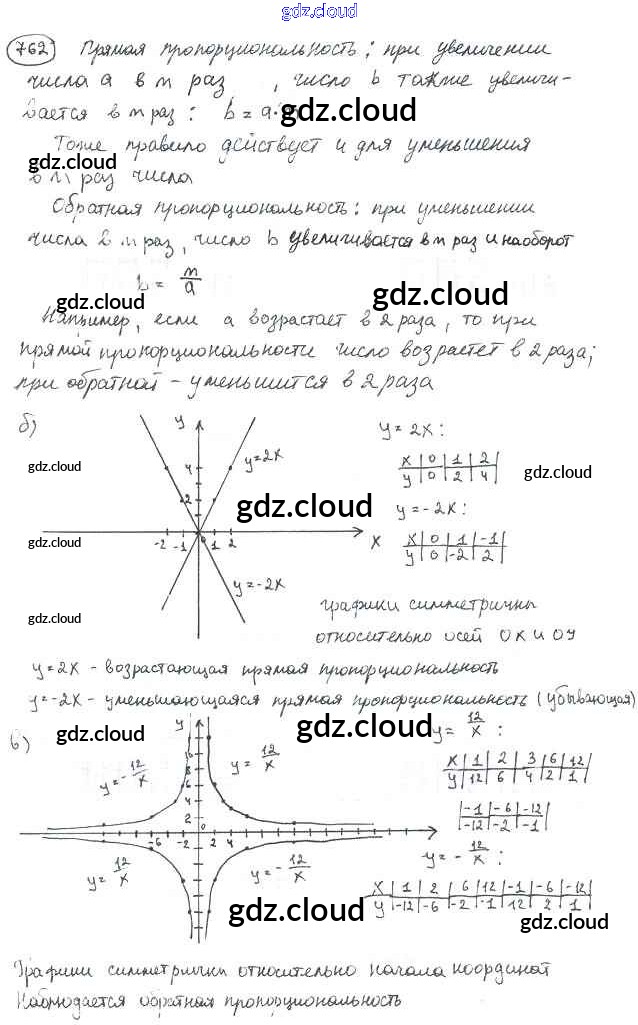 gdz.cloud
762 Прямая пропорциональность: при увеличении
числа a в m раз, число b также увеличи-
вается в m раз: b = a·m
gdz.cloud
Тоже правило действует и для уменьшения
gdz.cloud gdz.cloud
в m раз числа
Обратная пропорциональность: при уменьшении
числа в m раз, число b увеличивается в m раз и наоборот
b = m/a
gdz.cloud gdz.cloud
Например, если a возрастает в 2 раза, то при
прямой пропорциональности число возрастет в 2 раза;
при обратной – уменьшится в 2 раза
б) y y = 2x:
4 y=2x x | 0 | 1 | 2 |
gdz.cloud gdz.cloud
y | 0 | 2 | 4 |
2 gdz.cloud y = -2x:
-2 -1 0 1 2 x x | 0 | 1 | -1 |
gdz.cloud
y | 0 | -2 | 2 |
y=-2x
графики симметричны
gdz.cloud
относительно осей OX и OY
y=2x - возрастающая прямая пропорциональность
y=-2x - уменьшающаяся прямая пропорциональность (убывающая)
в) gdz.cloud y gdz.cloud y = 12/x :
y=-12/x y = 12/x x | 1 | 2 | 3 | 6 | 12 |
8 gdz.cloud
y | 12 | 6 | 4 | 2 | 1 |
6
4 | -1 | -6 | -12 |
2 gdz.cloud
| -12 | -2 | -1 |
-6 -2 0 2 4 y = -12/x :
y = 12/x y = -12/x x | 1 | 2 | 6 | 12 | -1 | -6 | -12 |
gdz.cloud
y | -12 | -6 | -2 | -1 | 12 | 2 | 1 |
gdz.cloud gdz.cloud
Графики симметричны относительно начала координат
Наблюдается обратная пропорциональность